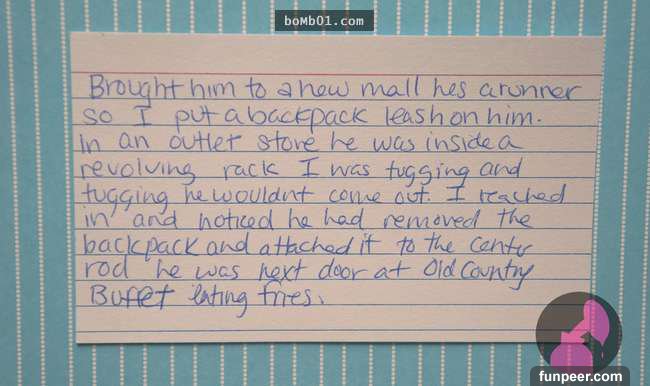 boMb01.com
Brought him to a new mall hes a runner
so I put a backpack leash on him.
In an outlet store he was inside a
revolving rack I was tugging and
tugging he wouldnt come out. I reached
in and noticed he had removed the
backpack and attached it to the center
rod he was next door at Old Country
Buffet eating fries.
funpeer.com